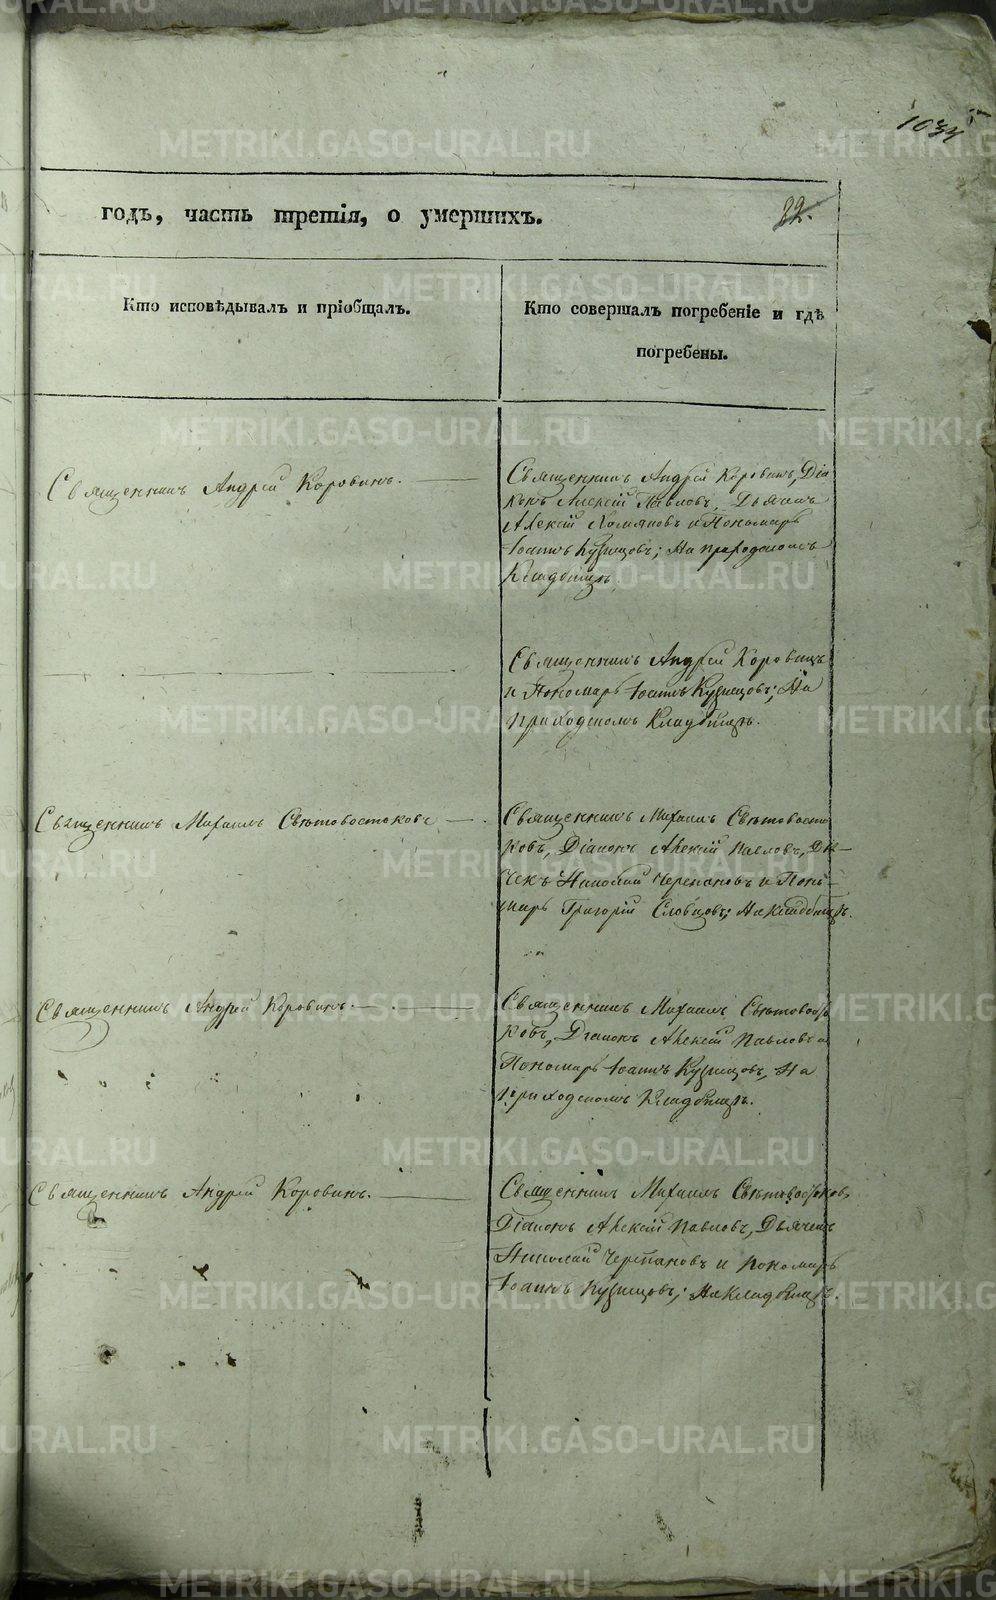 1034
годъ, часть третія, о умершихъ.
82.
Кто исповѣдывалъ и пріобщалъ.
Кто совершалъ погребеніе и гдѣ
погребены.
Священникъ Андрей Коровинъ.
Священникъ Андрей Коровинъ, Діа
конъ Алексій Павловъ, Дьячекъ
Алексій Хомяковъ и Пономарь
Іоаннъ Кузнецовъ; На приходскомъ
Кладбищѣ.
Священникъ Андрей Коровинъ
и Пономарь Іоаннъ Кузнецовъ; На
приходскомъ Кладбищѣ.
Священникъ Михаилъ Свѣтовостоковъ
Священникъ Михаилъ Свѣтовосто
ковъ, Діаконъ Алексій Павловъ, Дья
чекъ Николай Черепановъ и Поно
марь Григорій Словцовъ; На кладбищѣ.
Священникъ Андрей Коровинъ.
Священникъ Михаилъ Свѣтовосто
ковъ, Діаконъ Алексій Павловъ и
Пономарь Іоаннъ Кузнецовъ, На
приходскомъ Кладбищѣ.
Священникъ Андрей Коровинъ.
Священникъ Михаилъ Свѣтовостоковъ,
Діаконъ Алексій Павловъ, Дьячекъ
Николай Черепановъ и пономарь
Іоаннъ Кузнецовъ; На кладбищѣ.
METRIKI.GASO-URAL.RU